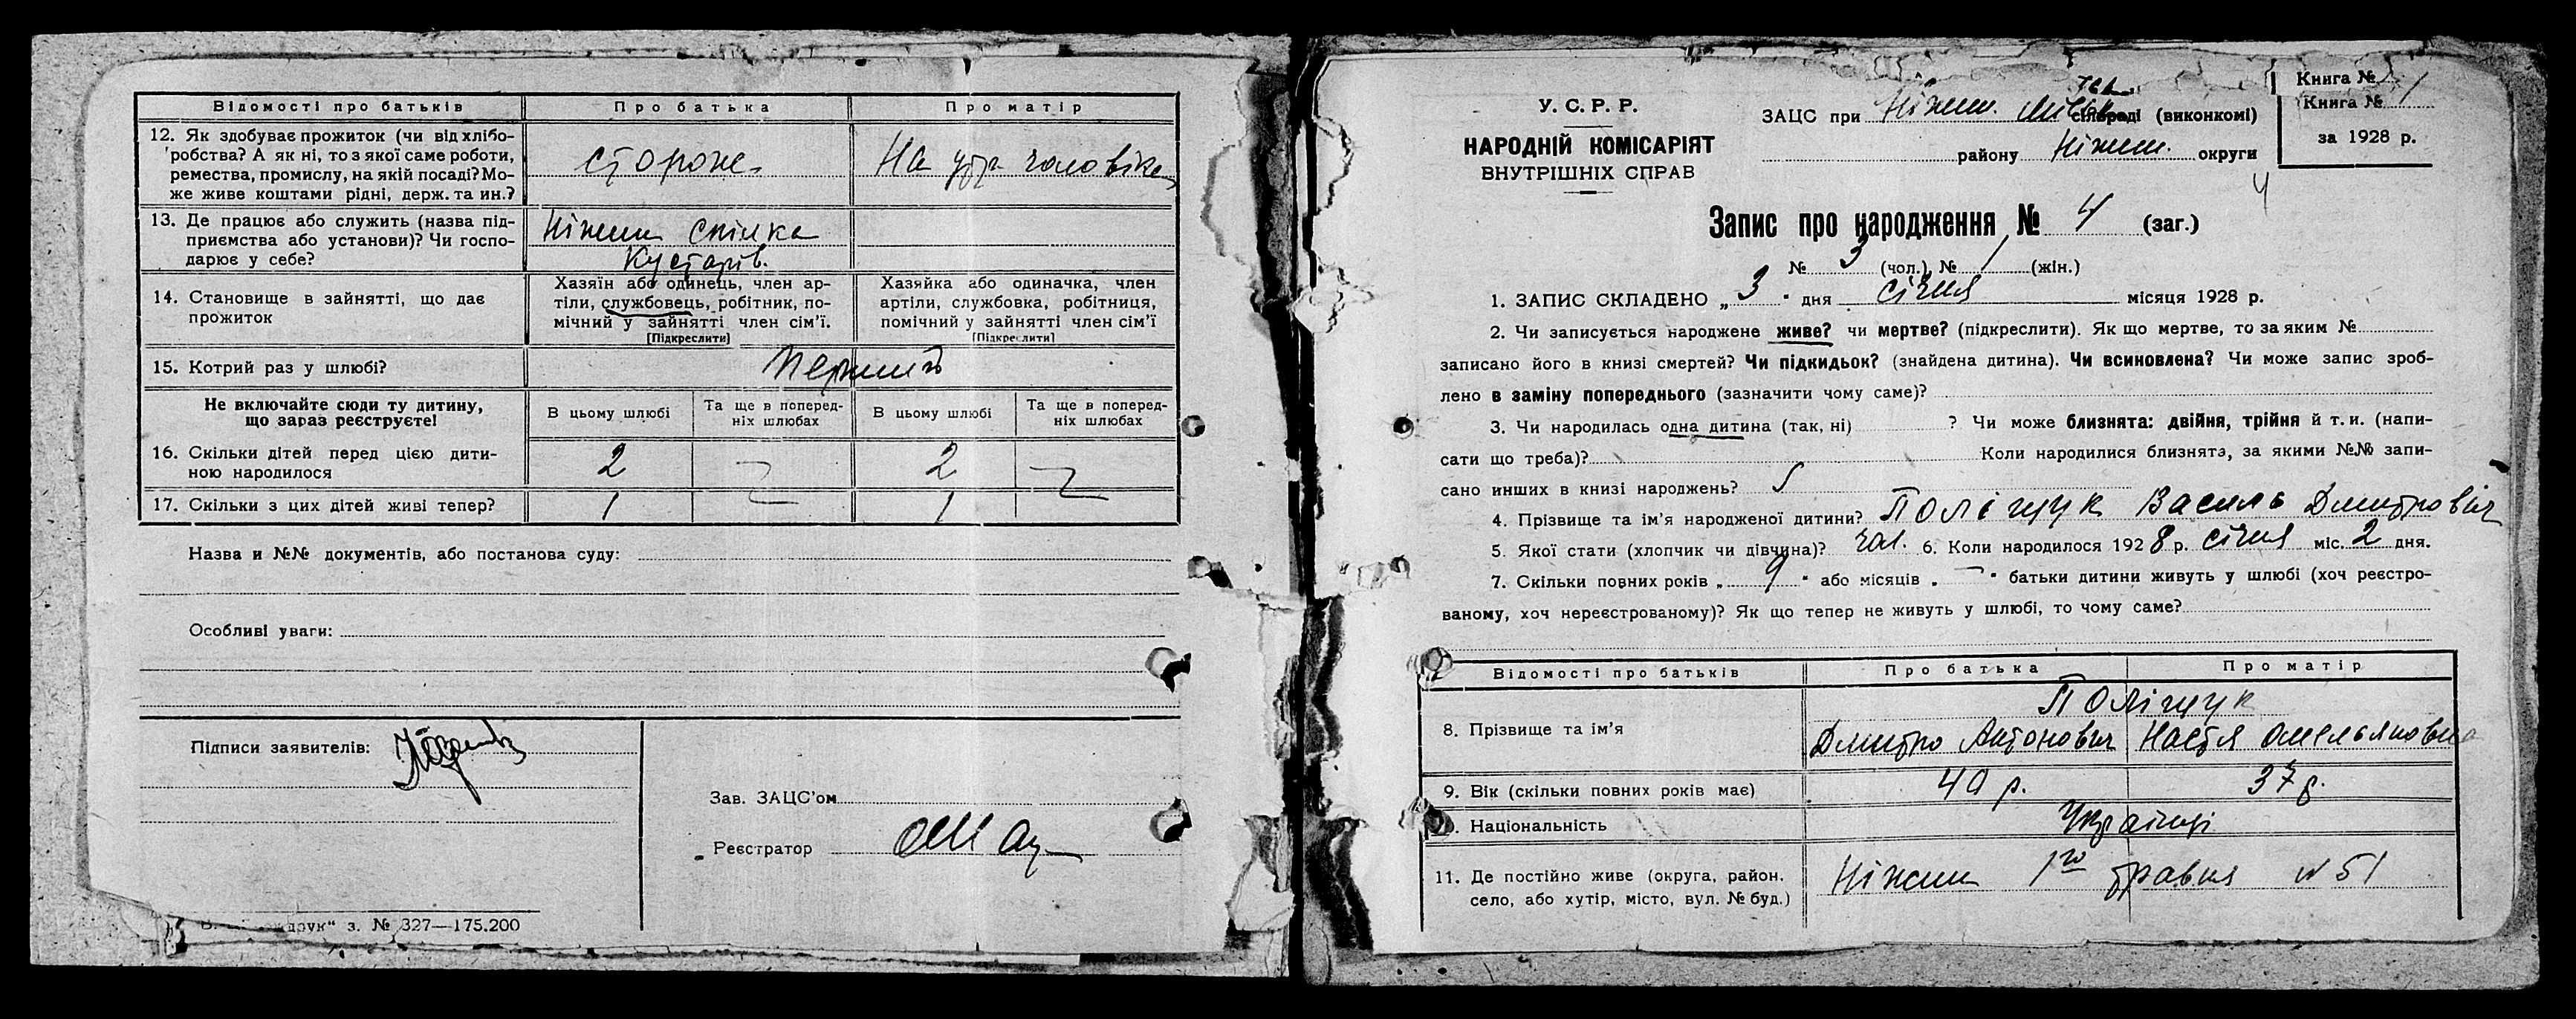 Відомості про батьків Про батька Про матір
12. Як здобуває прожиток (чи від хлібо-
робства? А як ні, то з якої саме роботи,
ремества, промислу, на якій посаді? Мо-
же живе коштами рідні, держ. та ин.?
сторож На утр. чоловіка
13. Де працює або служить (назва під-
приємства або установи)? Чи госпо-
дарює у себе?
Ніжин Спілка
Кустарів.
14. Становище в зайнятті, що дає
прожиток
Хазяїн або одинець, член ар-
тіли, службовець, робітник, по-
мічний у зайнятті член сім’ї.
[Підкреслити]
Хазяйка або одиначка, член
артіли, службовка, робітниця,
помічний у зайнятті член сім’ї
[Підкреслити]
15. Котрий раз у шлюбі? Перший
Не включайте сюди ту дитину,
що зараз реєструєте!
В цьому шлюбі Та ще в поперед-
ніх шлюбах В цьому шлюбі Та ще в поперед-
ніх шлюбах
16. Скільки дітей перед цією дити-
ною народилося 2 2
17. Скільки з цих дітей живі тепер? 1 1
Назва и №№ документів, або постанова суду:
Особливі уваги:
Підписи заявителів:
Зав. ЗАЦС’ом
Реєстратор
друк“ з. № 327—175.200
У. С. Р. Р.
НАРОДНІЙ КОМІСАРІЯТ
ВНУТРІШНІХ СПРАВ
ЗАЦС при Ніжин. сільраді (виконкомі)
району Ніжин. округи
Книга №
Книга № 1
за 1928 р.
4
Запис про народження № 4 (заг.)
№ 3 (чол.), № 1 (жін.)
1. ЗАПИС СКЛАДЕНО „ 3 “ дня січня місяця 1928 р.
2. Чи записується народжене живе? чи мертве? (підкреслити). Як що мертве, то за яким №
записано його в книзі смертей? Чи підкидьок? (знайдена дитина). Чи всиновлена? Чи може запис зроб-
лено в заміну попереднього (зазначити чому саме)?
3. Чи народилась одна дитина (так, ні) ? Чи може близнята: двійня, трійня й т. и. (напи-
сати що треба)? Коли народилися близнята, за якими №№ запи-
сано инших в книзі народжень?
4. Прізвище та ім’я народженої дитини? Поліщук Василь Дмитрович
5. Якої стати (хлопчик чи дівчина)? чол. 6. Коли народилося 1928 р. січня міс. 2 дня.
7. Скільки повних років „ 9 “ або місяців „ — “ батьки дитини живуть у шлюбі (хоч реєстро-
ваному, хоч нереєстрованому)? Як що тепер не живуть у шлюбі, то чому саме?
Відомості про батьків Про батька Про матір
Поліщук
8. Прізвище та ім’я Дмитро Антонович Настя Омельяновна
9. Вік (скільки повних років має) 40 р. 37 р.
10. Національність Українці
11. Де постійно живе (округа, район,
село, або хутір, місто, вул. № буд.)
Ніжин 1го травня № 51